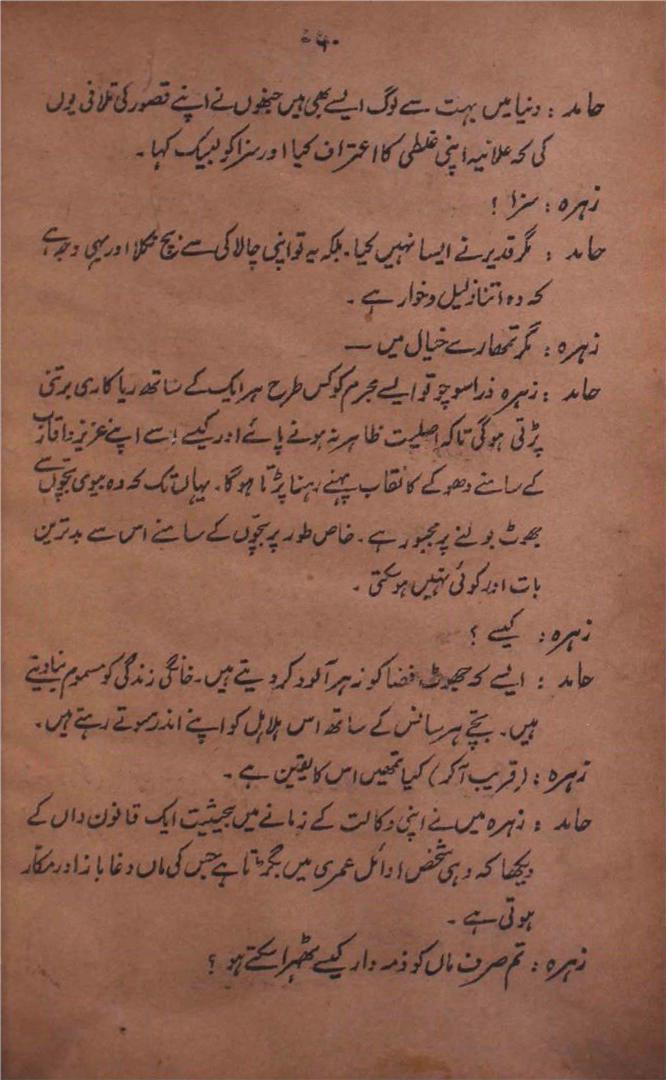 حامد : دنیا میں بہت سے لوگ ایسے بھی ہیں جنھوں نے اپنے قصور کی تلافی یوں
کی کہ علانیہ اپنی غلطی کا اعتراف کیا اور سزا کو لبیک کہا۔
زہرہ : سزا !
حامد : مگر قدیر نے ایسا نہیں کیا۔ بلکہ یہ تو اپنی چالاکی سے بچ نکلا اور یہی وجہ ہے
کہ وہ اتنا ذلیل و خوار ہے۔
زہرہ : مگر تمھارے خیال میں —
حامد : زہرہ ذرا سوچو تو ایسے مجرم کو کس طرح ہر ایک کے ساتھ ریاکاری برتنی
پڑتی ہوگی تاکہ اصلیت ظاہر نہ ہونے پائے اور کیسے اسے اپنے عزیز و اقارب
کے سامنے دھوکے کا نقاب پہنے رہنا پڑتا ہوگا۔ یہاں تک کہ وہ بیوی بچّوں سے
جھوٹ بولنے پر مجبور ہے۔ خاص طور پر بچّوں کے سامنے اس سے بدترین
بات اور کوئی نہیں ہوسکتی۔
زہرہ : کیسے ؟
حامد : ایسے کہ جھوٹ فضا کو زہر آلود کر دیتے ہیں۔ خانگی زندگی کو مسموم بنا دیتے
ہیں۔ بچّے ہر سانس کے ساتھ اس ہلاہل کو اپنے اندر سموتے رہتے ہیں۔
زہرہ : (قریب آکر) کیا تمھیں اس کا یقین ہے۔
حامد : زہرہ میں نے اپنی وکالت کے زمانے میں بحیثیت ایک قانون داں کے
دیکھا کہ وہی شخص اوائل عمری میں بگڑتا ہے جس کی ماں دغا باز اور مکّار
ہوتی ہے۔
زہرہ : تم صرف ماں کو ذمہ دار کیسے ٹھہرا سکتے ہو ؟